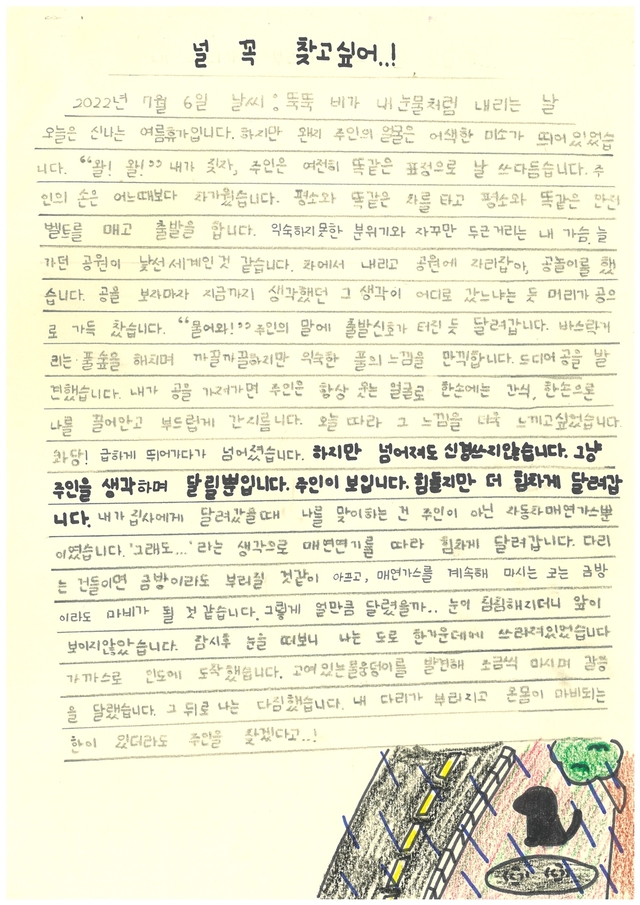 널 꼭 찾고싶어..!
2022년 7월 6일 날씨 : 뚝뚝 비가 내 눈물처럼 내리는 날
오늘은 신나는 여름휴가입니다. 하지만 왠지 주인의 얼굴은 어색한 미소가 띄어있었습
니다. "왈! 왈!" 내가 짖자, 주인은 여전히 똑같은 표정으로 날 쓰다듬습니다. 주
인의 손은 어느때보다 차가웠습니다. 평소와 똑같은 차를 타고 평소와 똑같은 안전
벨트를 매고 출발을 합니다. 익숙하지못한 분위기와 자꾸만 두근거리는 내 가슴. 늘
가던 공원이 낯선세계인것 같습니다. 차에서 내리고 공원에 자리잡아, 공놀이를 했
습니다. 공을 보자마자 지금까지 생각했던 그 생각이 어디로 갔느냐는 듯 머리가 공으
로 가득 찼습니다. "물어와!" 주인의 말에 출발신호가 터린 듯 달려갑니다. 바스락거
리는 풀숲을 해치며 까끌까끌하지만 익숙한 풀의 느낌을 만끽합니다. 드디어 공을 발
견했습니다. 내가 공을 가져가면 주인은 항상 웃는 얼굴로 한손에는 간식, 한손으로
나를 끌어안고 부드럽게 간지릅니다. 오늘따라 그 느낌을 더욱 느끼고싶었습니다.
콰당! 급하게 뛰어가다가 넘어졌습니다. 하지만 넘어져도 신경쓰지않습니다. 그냥
주인을 생각하며 달릴뿐입니다. 주인이 보입니다. 힘들지만 더 힘차게 달려갑
니다. 내가 집사에게 달려갔을때 나를 맞이하는 건 주인이 아닌 자동차매연가스뿐
이였습니다. '그래도...' 라는 생각으로 매연연기를 따라 힘차게 달려갑니다. 다리
는 건들이면 금방이라도 부러질 것같이 아프고, 매연가스를 계속해 마시는 코는 금방
이라도 마비가 될 것 같습니다. 그렇게 얼만큼 달렸을까.. 눈이 침침해지더니 앞이
보이지않았습니다. 잠시후 눈을 떠보니 나는 도로 한가운데에 쓰러져있었습니다
가까스로 인도에 도착했습니다. 고여있는물웅덩이를 발견해 조금씩 마시며 갈증
을 달랬습니다. 그 뒤로 나는 다짐했습니다. 내 다리가 부러지고 온몸이 마비되는
한이 있더라도 주인을 찾겠다고..!